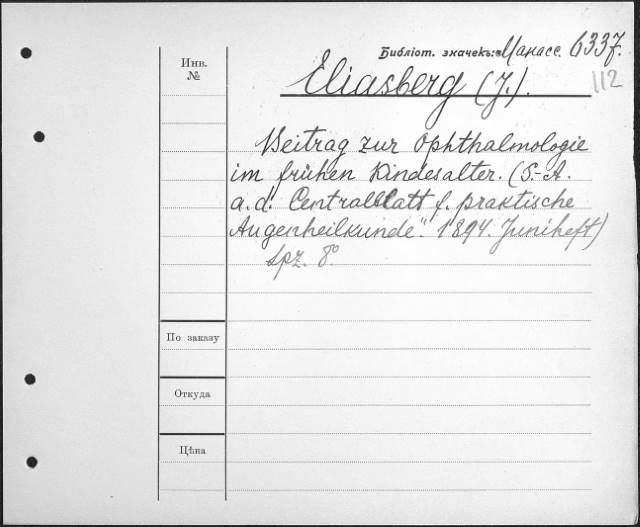 Библіот. значекъ: Манасс. 6337.
112
Инв.
№
Eliasberg (J.).
Beitrag zur Ophthalmologie
im frühen Kindesalter. (S.-A.
a. d. "Centralblatt f. praktische
Augenheilkunde". 1894. Juniheft)
Spz. 8°
По заказу
Откуда
Цѣна